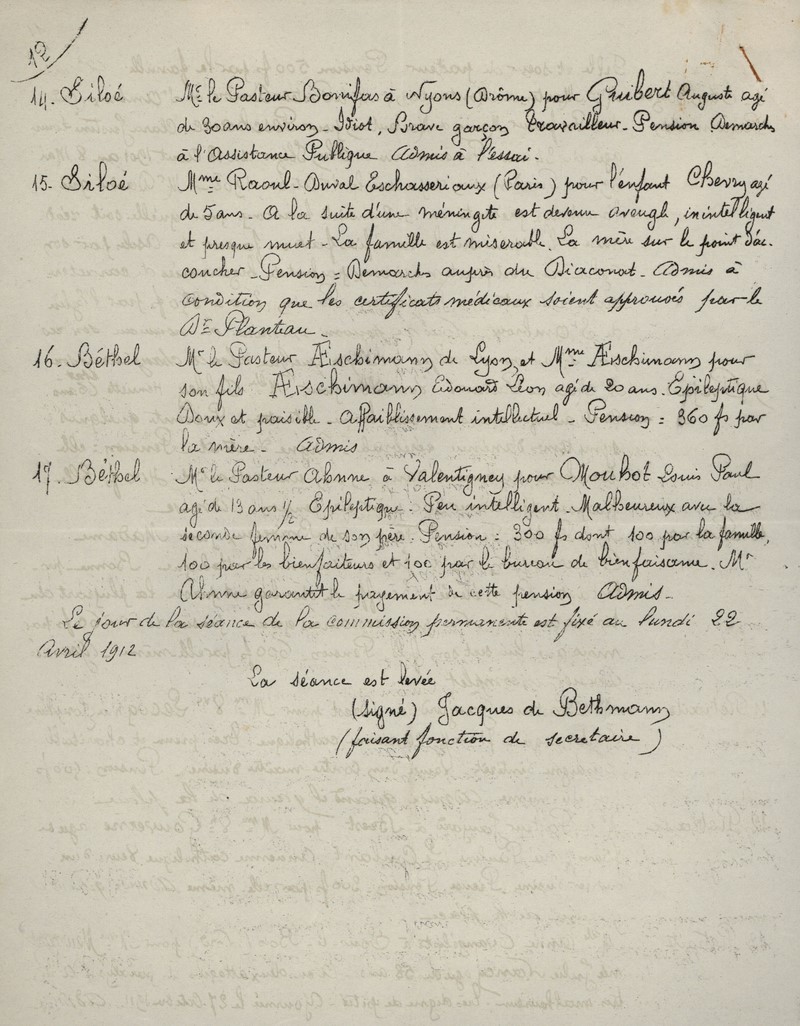 12
14. Siloé Mr. le Pasteur Bonifas à Nyons (Drôme) pour Guibert Auguste agé
de 30 ans environ - Idiot, Brave garçon travailleur - Pension Démarches
à l'Assistance Publique Admis à l'essai.
15. Siloé Mme Raoul-Duval Eschasseriaux (Paris) pour l'enfant Chevry agé
de 5 ans - A la suite d'une méningite est devenu aveugle, inintelligent
et presque muet - La famille est misérable. La mère sur le point d'ac-
coucher - Pension = Démarches auprès du Diaconat - Admis à
condition que les certificats médicaux soient approuvés par le
Dr Planteau -
16. Béthel Mr le Pasteur Æschimann de Lyon et Mme Æschimann pour
son fils Æschimann Edouard Léon agé de 20 ans. Epileptique
Doux et paisible - Affaiblissement intellectuel - Pension = 360 fs par
la mère - Admis
17. Béthel Mr le Pasteur Ahnne à Valentigney pour Mouhot Louis Paul
agé de 13 ans 1/2 Epileptique - Peu intelligent - Malheureux avec la
seconde femme de son père. Pension = 300 fs dont 100 par la famille,
100 par les bienfaiteurs et 100 par le bureau de bienfaisance. Mr
Ahnne garantit le payement de cette pension Admis -
Le jour de la séance de la commission permanente est fixé au lundi 22
Avril 1912
La séance est levée
(signé) Jacques de Bethmann
(faisant fonction de secrétaire)